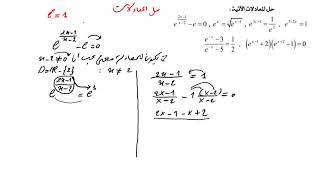 حل المعادلات
e = 1
حل المعادلات الآتية :
e^{\frac{2x-1}{x-2}} - e = 0 ، e^x = \sqrt{e^{x-1}} ، e^{3x+1} = \frac{1}{e^x} ، e^{x^2+2x} = 1
\frac{e^{-x}-3}{e^{-x}-5} = \frac{1}{2} ، (e^{-x}+2)(e^{x-2}-1) = 0
e^{\frac{2x-1}{x-2}} - e = 0
x-2≠0
x ≠ 2
D=IR-{2}
e^{\frac{2x-1}{x-2}} = e^1
\frac{2x-1}{x-2} = 1
\frac{2x-1}{x-2} - 1\frac{(x-2)}{x-2} = 0
2x-1-x+2